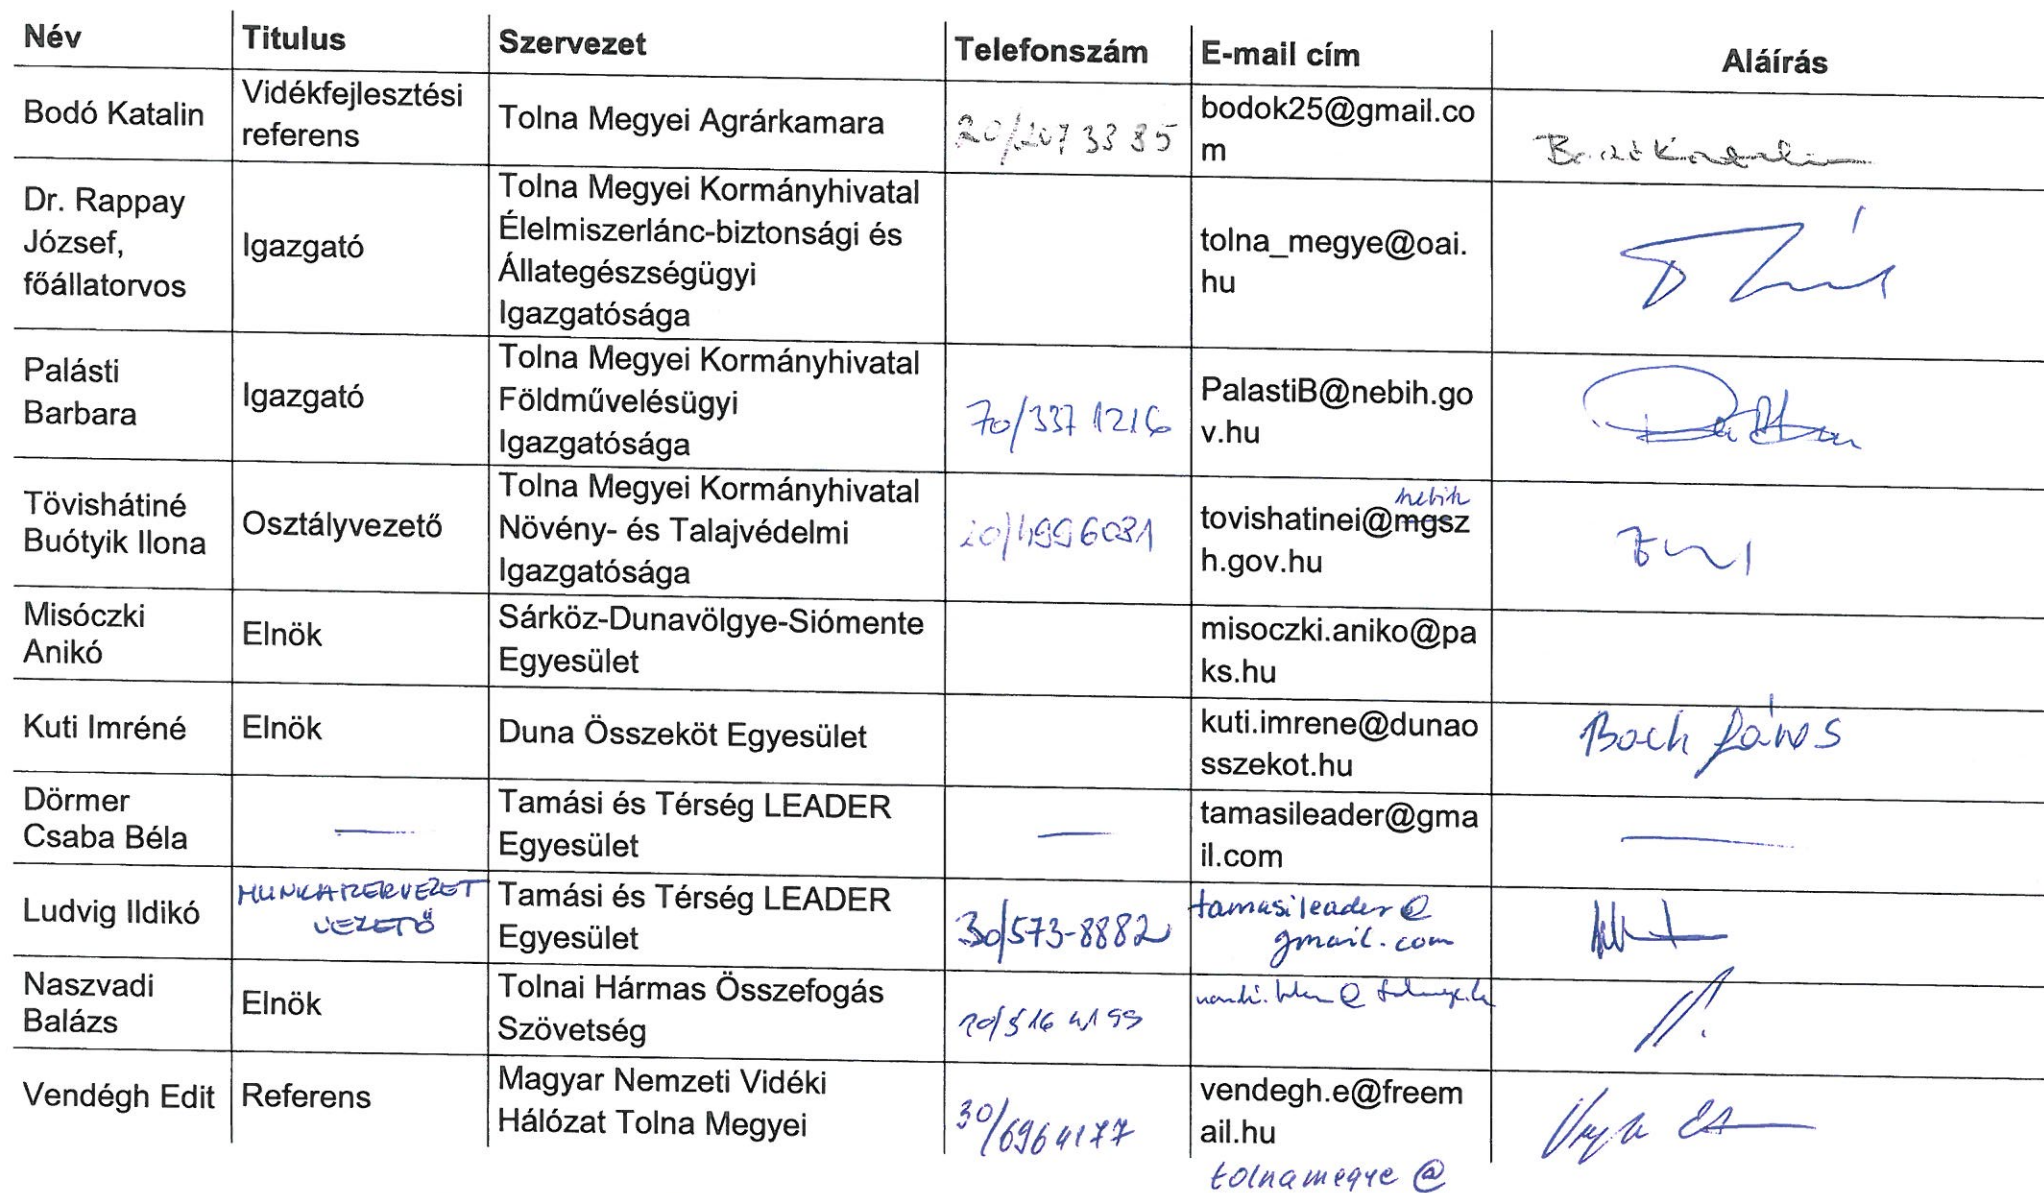 Név Titulus Szervezet Telefonszám E-mail cím Aláírás
Bodó Katalin
Vidékfejlesztési
referens
Tolna Megyei Agrárkamara
bodok25@gmail.co
m
Bodó Katalin
Dr. Rappay
József,
főállatorvos
Igazgató
Tolna Megyei Kormányhivatal
Élelmiszerlánc-biztonsági és
Állategészségügyi
Igazgatósága
tolna_megye@oai.
hu
Palásti
Barbara
Igazgató
Tolna Megyei Kormányhivatal
Földművelésügyi
Igazgatósága
70/337 1216
PalastiB@nebih.go
v.hu
Tövishátiné
Buótyik Ilona
Osztályvezető
Tolna Megyei Kormányhivatal
Növény- és Talajvédelmi
Igazgatósága
20/4996031
nebih
tovishatinei@mgsz
h.gov.hu
Misóczki
Anikó
Elnök
Sárköz-Dunavölgye-Siómente
Egyesület
misoczki.aniko@pa
ks.hu
Kuti Imréné
Elnök
Duna Összeköt Egyesület
kuti.imrene@dunao
sszekot.hu
Bach János
Dörmer
Csaba Béla
—
Tamási és Térség LEADER
Egyesület
—
tamasileader@gma
il.com
—
Ludvig Ildikó
MUNKASZERVEZET
VEZETŐ
Tamási és Térség LEADER
Egyesület
30/573-8882
tamasileader@
gmail.com
Naszvadi
Balázs
Elnök
Tolnai Hármas Összefogás
Szövetség
20/516 4199
Vendégh Edit
Referens
Magyar Nemzeti Vidéki
Hálózat Tolna Megyei
30/6964177
vendegh.e@freem
ail.hu
tolnamegye@